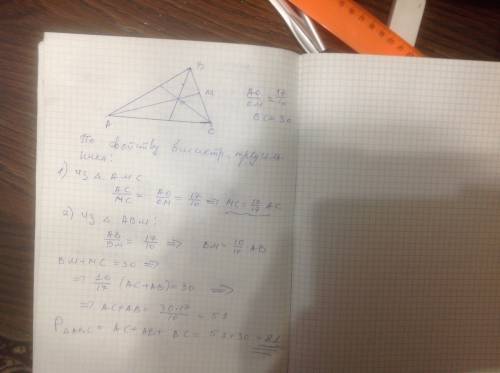 B
M
A
C
AO/OM = 17/10
BC = 30
По свойству биссектр. треуголь-
ника:
1) из Δ AMC
AC/MC = AO/OM = 17/10 => MC = 10/17 AC
2) из Δ ABM:
AB/BM = 17/10 => BM = 10/17 AB
BM+MC = 30 =>
=> 10/17 (AC+AB) = 30 =>
=> AC+AB = 30·17/10 = 51
P ΔABC = AC + AB + BC = 51+30 = 81